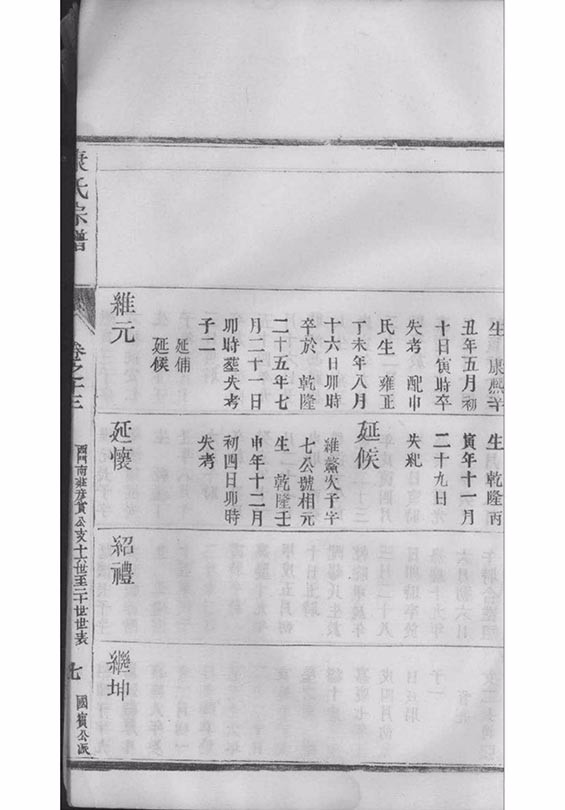 生 康熙辛
丑年五月初
十日寅時卒
失考 配申
氏生 雍正
丁未年八月
十六日卯時
卒於 乾隆
二十五年七
月二十一日
卯時葬失考
子二
延傋
延候
維元
生 乾隆丙
寅年十一月
二十九日
失紀
延候
維 次子字
七公號相元
生 乾隆壬
申年十二月
初四日卯時
失考
延懷
紹禮
繼坤
康氏宗譜
卷之十三
公支十六世至二十世世表
七
國賓公派